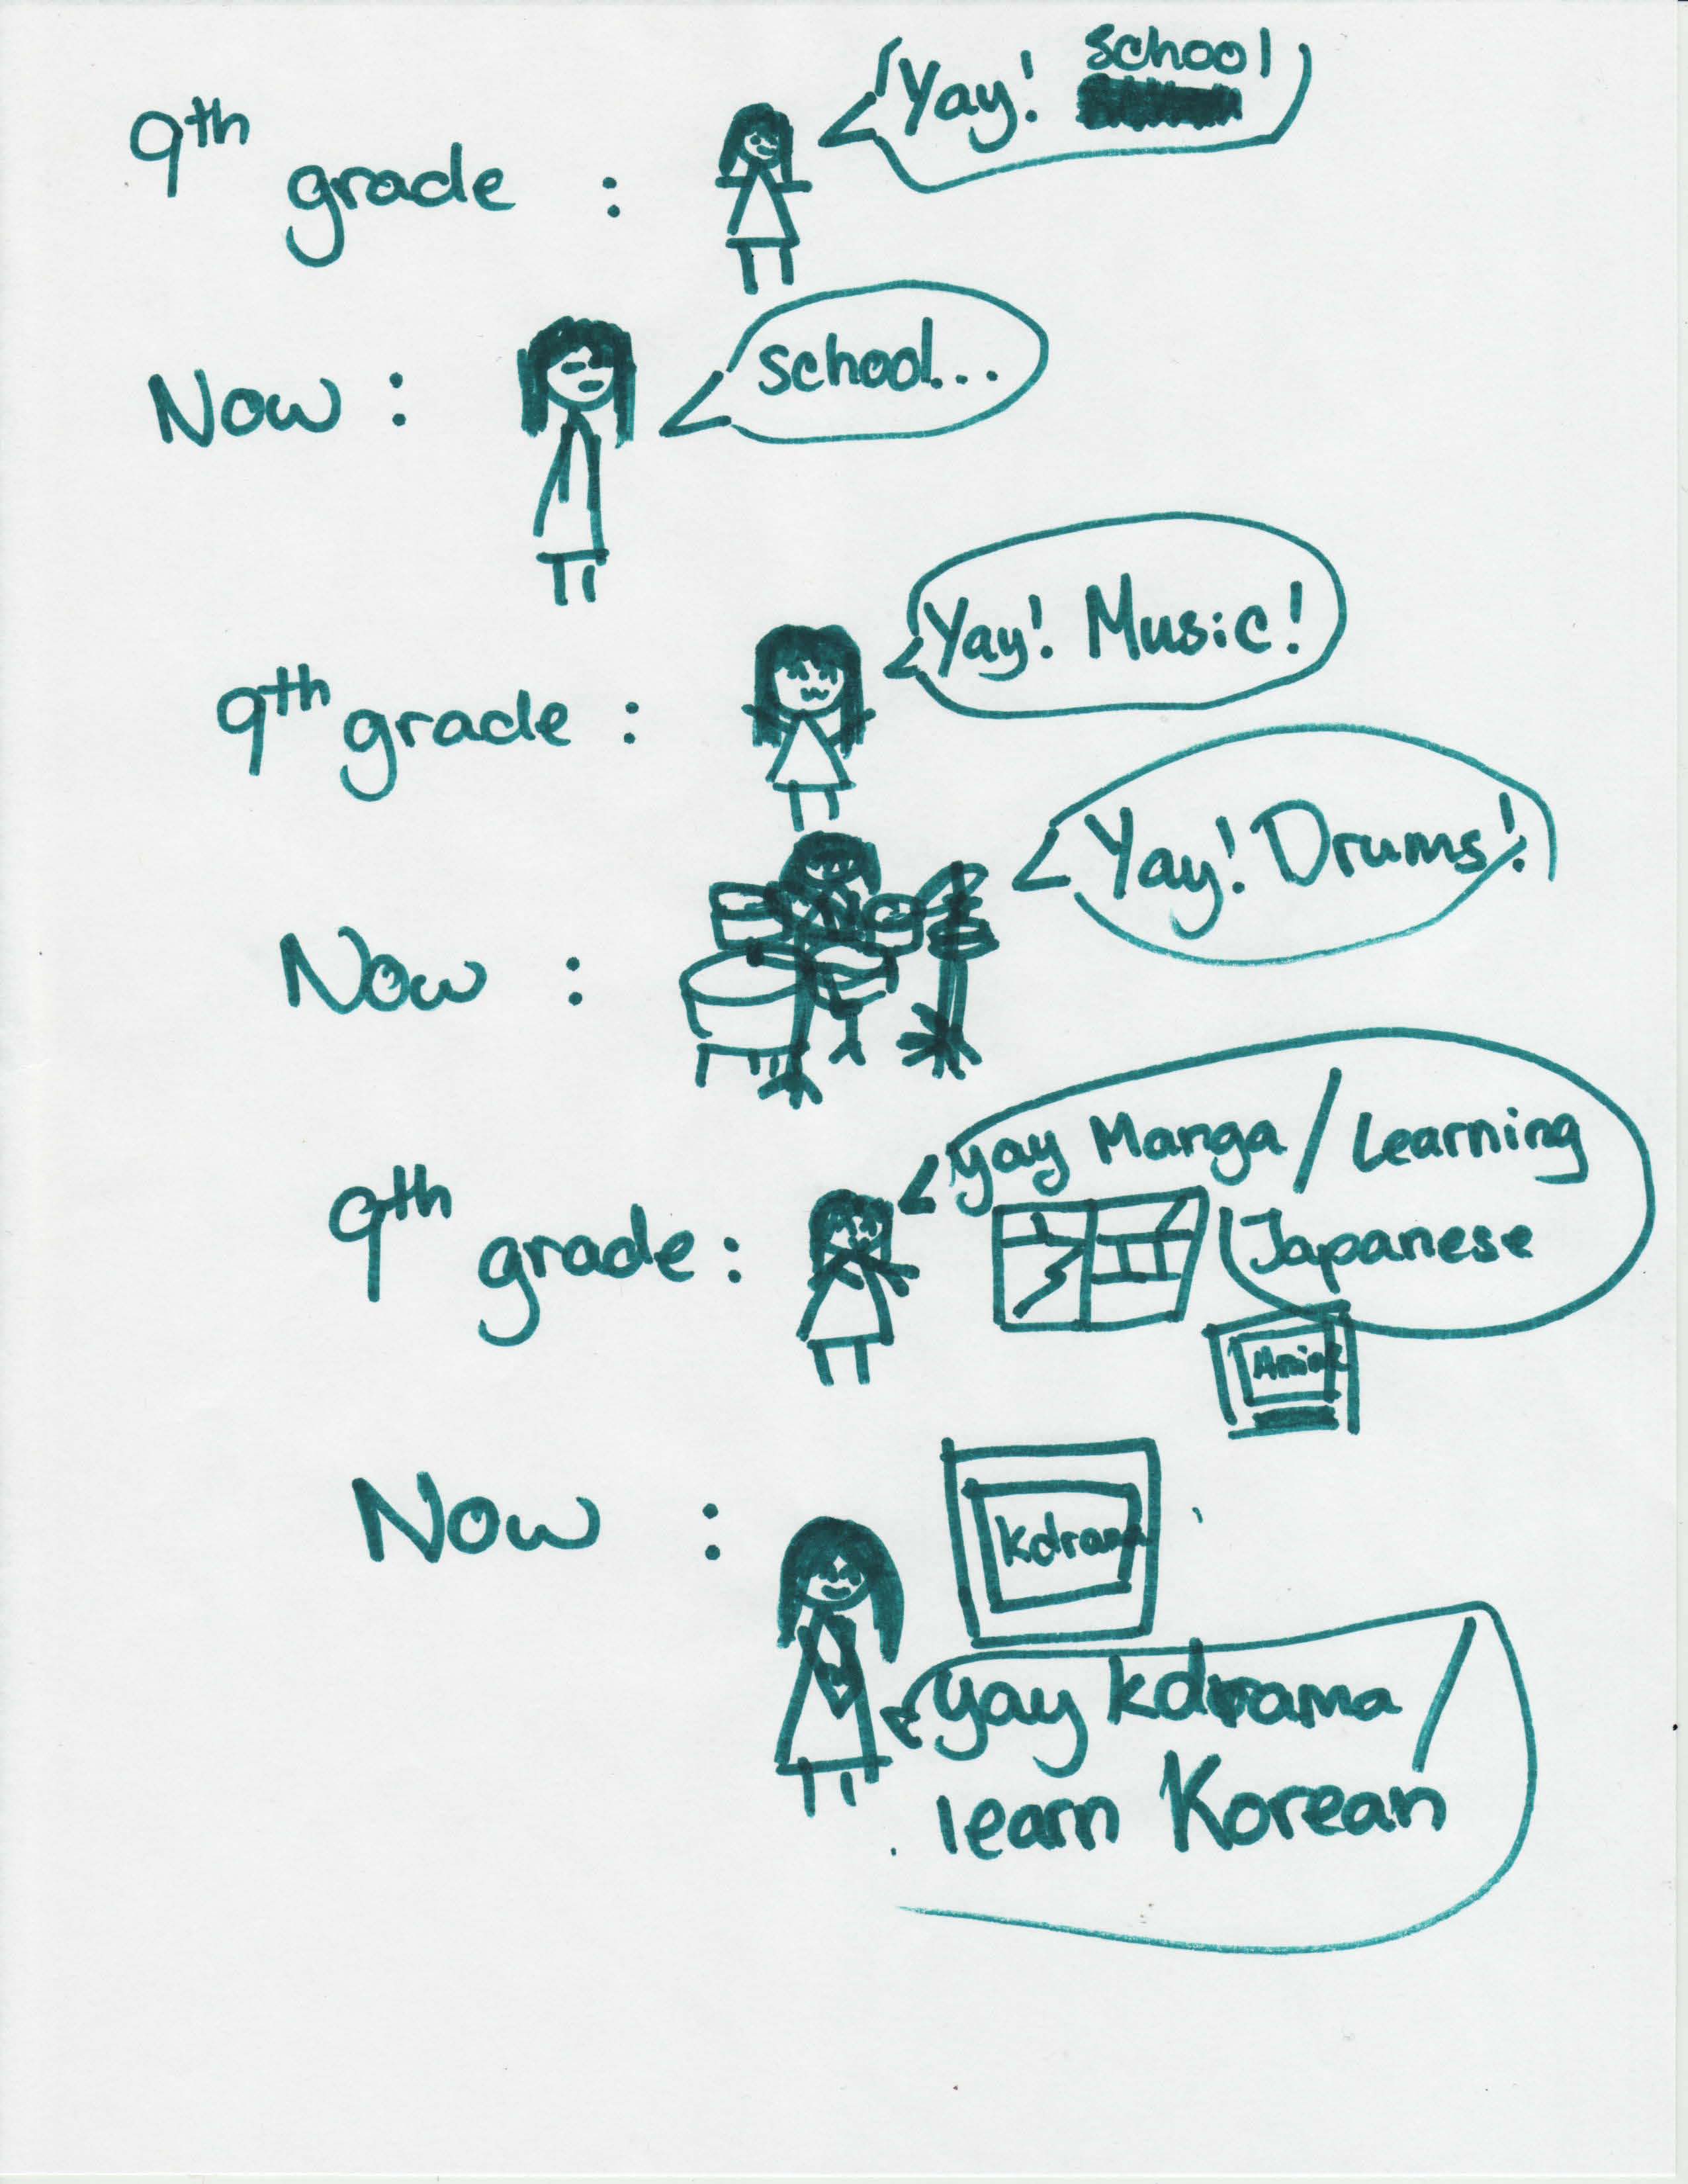 9th grade :
Yay! school
Now :
school...
9th grade :
Yay! Music!
Now :
Yay! Drums!
9th grade :
yay Manga / Learning
Japanese
Anime
Now :
kdrama
yay kdrama /
learn Korean